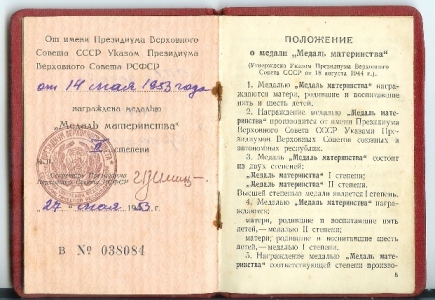 От имени Президиума Верховного
Совета СССР Указом Президиума
Верховного Совета РСФСР
от 14 мая 1953 года
награждена медалью
„Медаль материнства“
II степени
М.П.
Секретарь Президиума
Верховного Совета
„27“ мая 1953.
В № 038084
ПОЛОЖЕНИЕ
о медали „Медаль материнства“
(Утверждено Указом Президиума Верховного
Совета СССР от 18 августа 1944 г.).
1. Медалью „Медаль материнства“ награ-
ждаются матери, родившие и воспитавшие
пять и шесть детей.
2. Награждение медалью „Медаль мате-
ринства“ производится от имени Президиума
Верховного Совета СССР Указами Пре-
зидиумов Верховных Советов союзных и
автономных республик.
3. Медаль „Медаль материнства“ состоит
из двух степеней:
„Медаль материнства“ I степени;
„Медаль материнства“ II степени.
Высшей степенью медали является I степень.
4. Медалью „Медаль материнства“ на-
граждаются:
матери, родившие и воспитавшие пять
детей,—медалью II степени;
матери, родившие и воспитавшие шесть
детей,—медалью I степени.
5. Награждение медалью „Медаль мате-
ринства“ соответствующей степени произво-